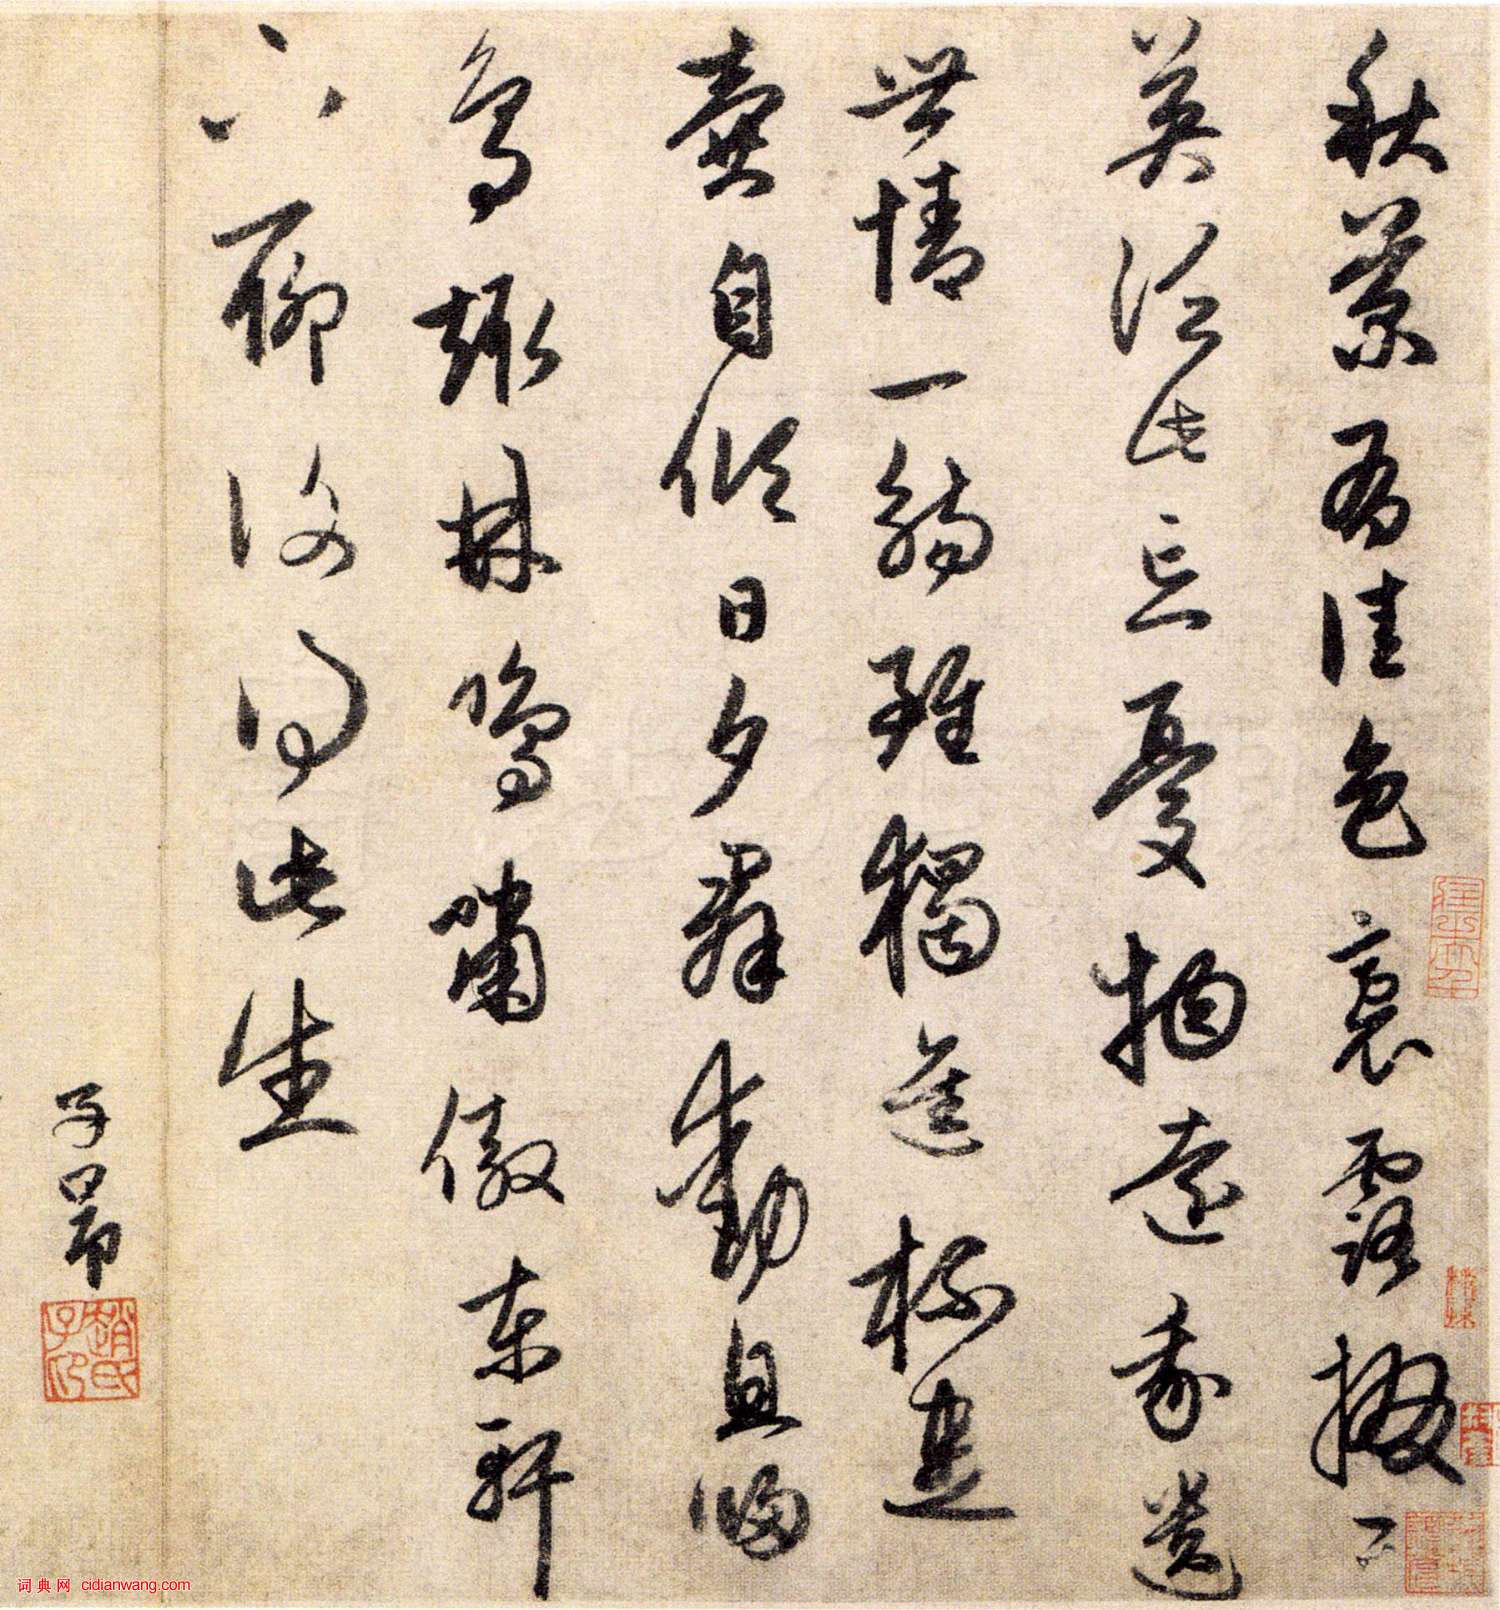 秋菊有佳色裛露掇其
英汎此忘憂物遠我遺
世情一觴雖獨進杯盡
壺自傾日夕羣動息歸
鳥趨林鳴嘯傲東軒
下聊復得此生
子昂
趙氏子昂
词典网 cidianwang.com